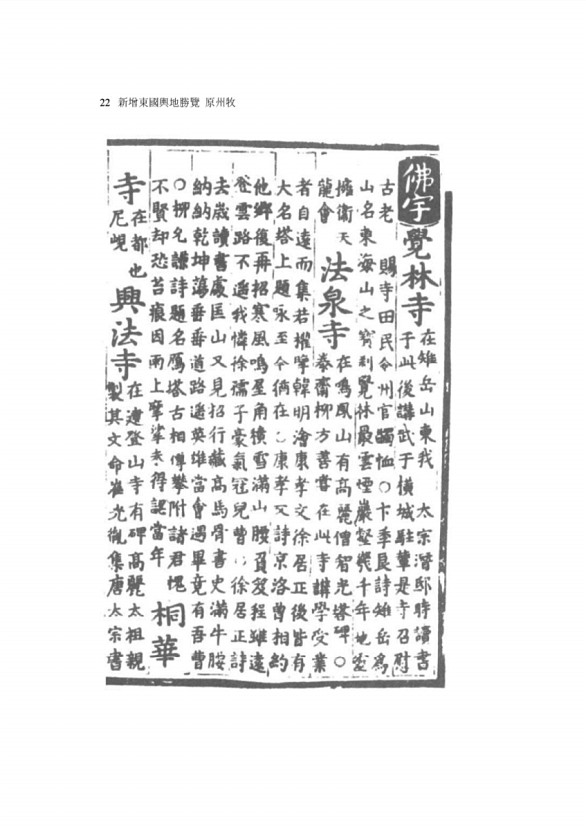 22 新增東國輿地勝覽 原州牧
佛宇
覺林寺
在雉岳山東我 太宗潛邸時讀書
于此後講武于橫城駐蹕是寺召慰
古老 賜寺田民令州官蠲恤○卞季良詩雉岳爲
山名東海山之寶刹覺林最雲煙巖壑幾千年地
擁衛天
龍會
法泉寺
在鳴鳳山有高麗僧智光塔碑○
泰齋柳方善嘗在此寺講學受業
者自遠而集若權擥韓明澮康孝文徐居正後皆有
大名塔上題咏至今猶在○康孝文詩京洛曾相約
他鄕後再招寒風鳴屋角積雪滿山腰負笈程雖遠
登雲路不遥我憐徐孺子豪氣冠兒曹○徐居正詩
去歲讀書處匡山又見招行藏高馬骨書史滿牛腰
納納乾坤蕩垂垂道路遥英雄當會遇畢竟有吾曹
○柳允謙詩題名鴈塔古相傳攀附諸君愧
不賢却恐苔痕因雨上摩挲未得認當年
桐華
寺
在都也
尼峴
興法寺
在建登山寺有碑高麗太祖親
製其文命崔光胤集唐太宗書